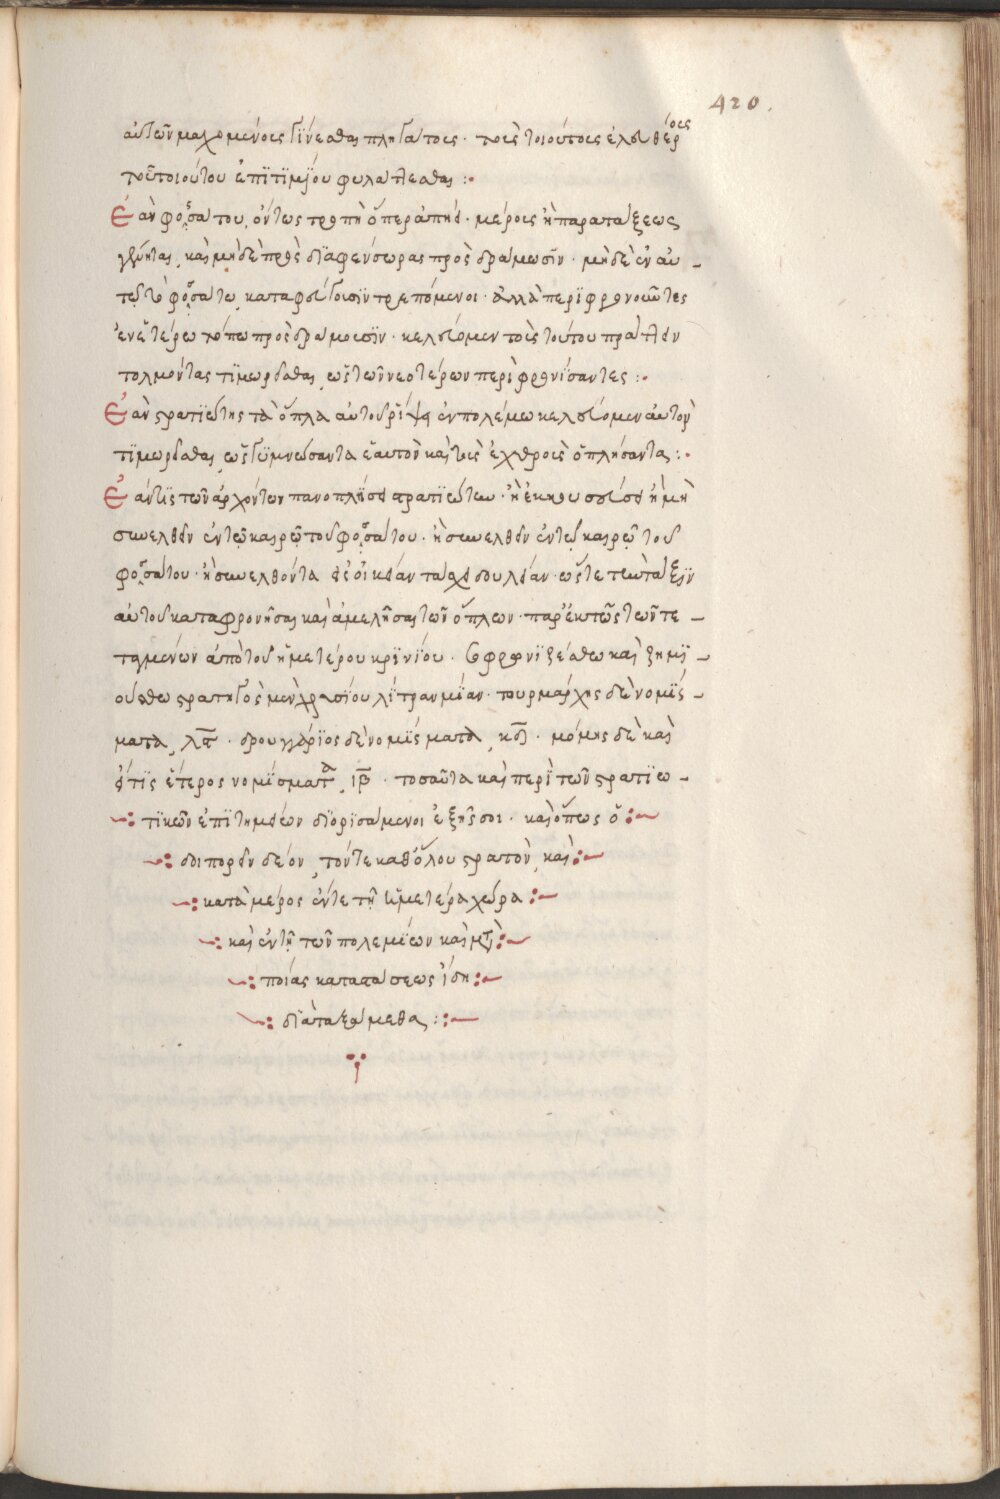 420.
αὐτῶν μαχομένοις γίνεσθαι πληγάτους · τοὺς τοιούτους ἐλευθέρους
τοῦ τοιούτου ἐπιτιμίου φυλάττεσθαι :·
Ἐὰν φοσσάτου ὄντως τροπὴ ὅπερ ἀπείη · μέρους ἢ παρατάξεως
γένηται, καὶ μὴ δὲ πρὸς διαφένσωρας προσδράμωσιν · μὴ δὲ ἐν αυ-
τῷ τῷ φοσσάτω καταφεύγουσιν τρεπόμενοι · ἀλλὰ περιφρονοῦντες
ἐν ἑτέρω τόπω προσδράμουσιν · κελεύομεν τοὺς τούτου πράττειν
τολμόντας τιμωρεῖσθαι, ὡς τῶν νεοτέρων περιφρονίσαντες :·
Ἐὰν στρατιώτης τὰ ὅπλα αὐτοῦ ῥίψη ἐν πολέμω κελεύομεν αὐτὸν
τιμωρεῖσθαι, ὡς γυμνώσαντα ἑαυτὸν καὶ τοὺς ἐχθροὺς ὁπλήσαντα :·
Ἐάν τις τῶν ἀρχόντων πανοπλίσει στρατιώτην · ἢ ἐκκουσεύσει ἢ μὴ
συνελθεῖν ἐν τῷ καιρῷ τοῦ φοσσάτου · ἢ συνελθεῖν ἐν τῷ καιρῷ τοῦ
φοσσάτου · ἢ συνελθόντα εἰς οἰκείαν ταχθεῖ δουλείαν · ὥστε τὴν τάξιν
αὐτοῦ καταφρονῆσαι καὶ ἀμελῆσαι τῶν ὅπλων · παρ' ἐκτὸς τῶν τε-
ταγμένων ἀπὸ τοῦ ἡμετέρου κρινίου · σωφρονιζέσθω καὶ ζημι-
ούσθω στρατηγὸς μὲν χρυσίου λίτραν μίαν · τουρμάρχης δὲ νομίς-
ματα, λϛ · δρουγγάριος δὲ νομίσματα, κδ · κόμης δὲ καὶ
εἴ τις ἕτερος νομίσματα, ιβ · τοσαῦτα καὶ περὶ τῶν στρατιω-
τικῶν ἐπιτημείων διορισάμενοι ἑξῆς σοι · καὶ ὅπως ὁ
δοιπορεῖν δέον, τόν τε καθόλου στρατὸν, καὶ
κατὰ μέρος ἔν τε τῇ ἡμετέρα χώρα
καὶ ἐν τῇ τῶν πολεμίων καὶ μετὰ
ποίας καταστάσεως ἤδη
διαταξόμεθα :